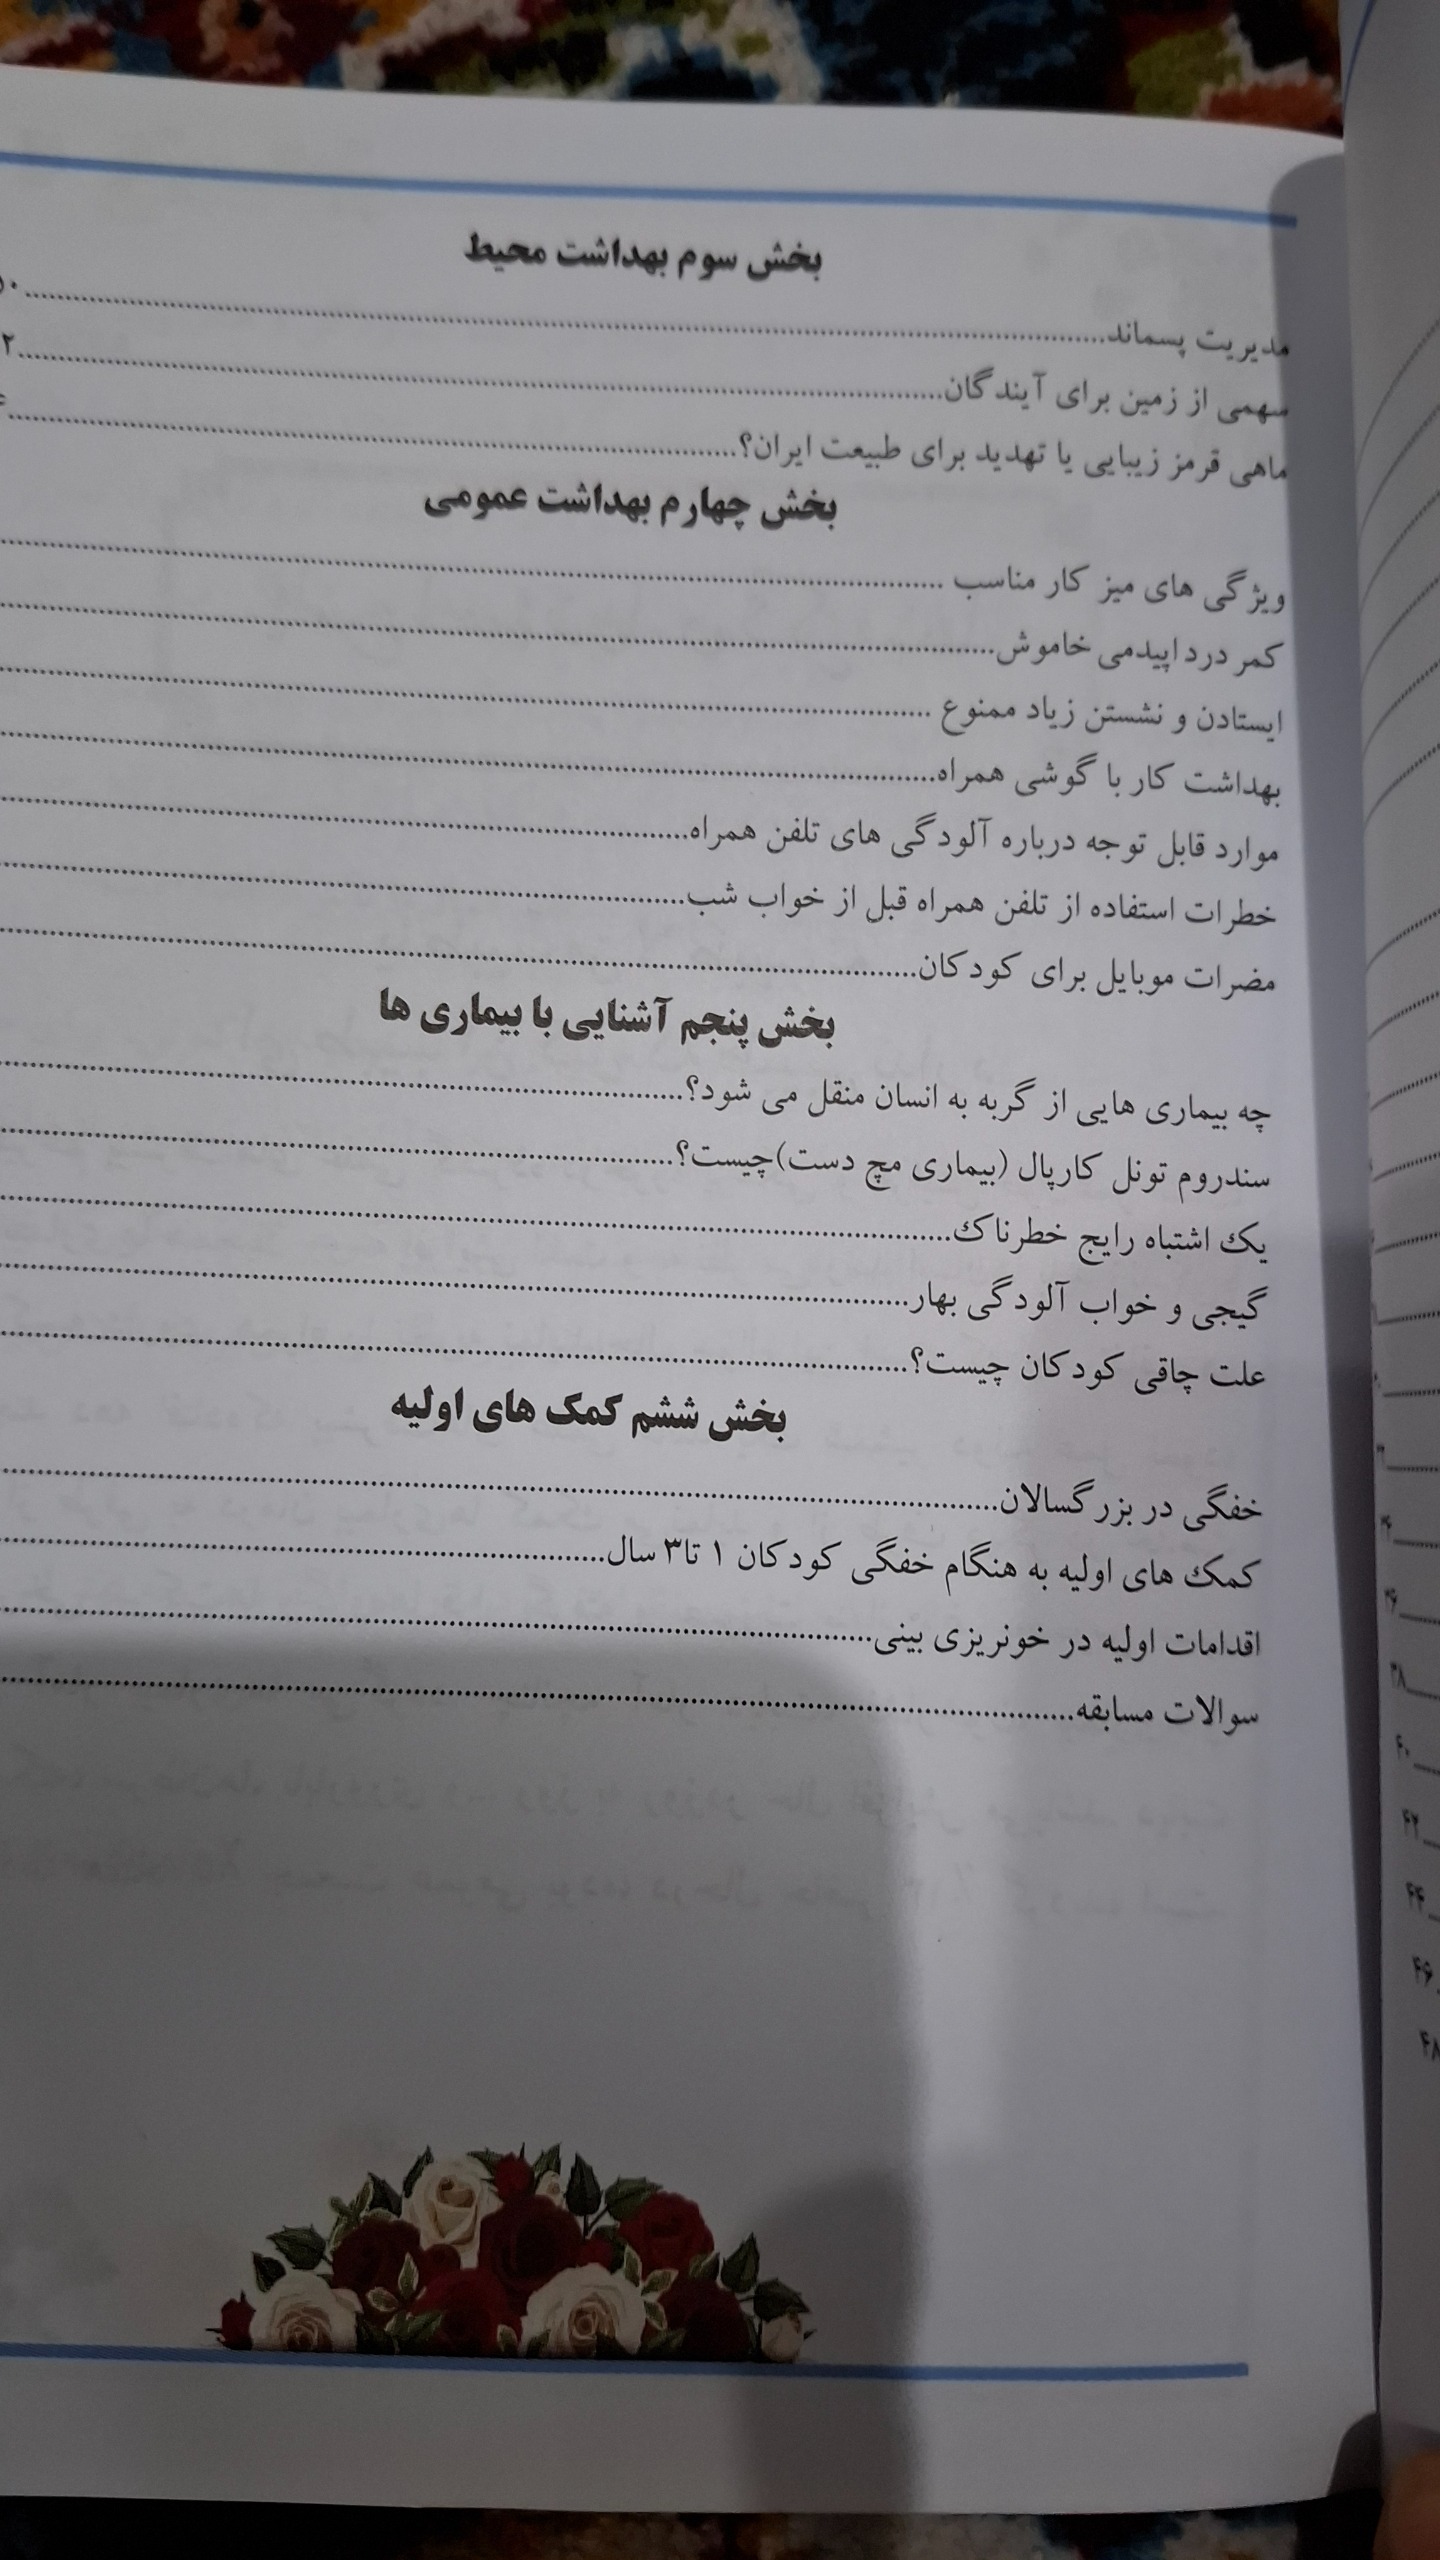 بخش سوم بهداشت محیط
مدیریت پسماند
سهمی از زمین برای آیندگان
ماهی قرمز زیبایی یا تهدید برای طبیعت ایران؟
بخش چهارم بهداشت عمومی
ویژگی های میز کار مناسب
کمر درد اپیدمی خاموش
ایستادن و نشستن زیاد ممنوع
بهداشت کار با گوشی همراه
موارد قابل توجه درباره آلودگی های تلفن همراه
خطرات استفاده از تلفن همراه قبل از خواب شب
مضرات موبایل برای کودکان
بخش پنجم آشنایی با بیماری ها
چه بیماری هایی از گربه به انسان منقل می شود؟
سندروم تونل کارپال (بیماری مچ دست)چیست؟
یک اشتباه رایج خطرناک
گیجی و خواب آلودگی بهار
علت چاقی کودکان چیست؟
بخش ششم کمک های اولیه
خفگی در بزرگسالان
کمک های اولیه به هنگام خفگی کودکان ۱ تا۳ سال
اقدامات اولیه در خونریزی بینی
سوالات مسابقه
۳۸
۴۰
۴۲
۴۴
۴۶
۴۸